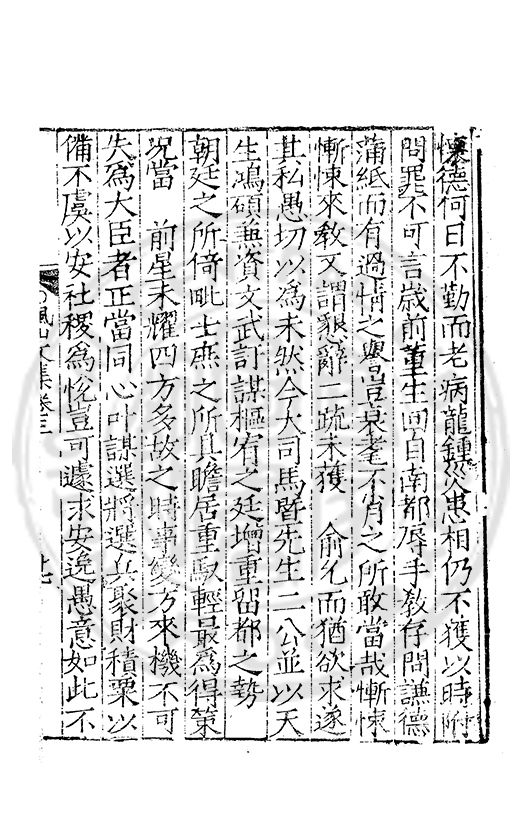 懷德何日不勤而老病龍鍾災患相仍不獲以時附
問罪不可言歲前董生回自南都辱手敎存問謙德
蒲紙而有過情之譽豈衰耄不肖之所敢當哉慚悚
慚悚來敎又謂懇辭二疏未獲 俞允而猶欲求遂
其私愚切以爲未然今大司馬曁先生二公並以天
生鴻碩兼資文武訏謀樞宥之廷增重留都之勢
朝廷之所倚毗士庶之所具瞻居重馭輕最爲得策
況當 前星未耀四方多故之時事變方來機不可
失爲大臣者正當同心叶謀選將選兵聚財積粟以
備不虞以安社稷爲悅豈可遽求安逸愚意如此不
文集卷三